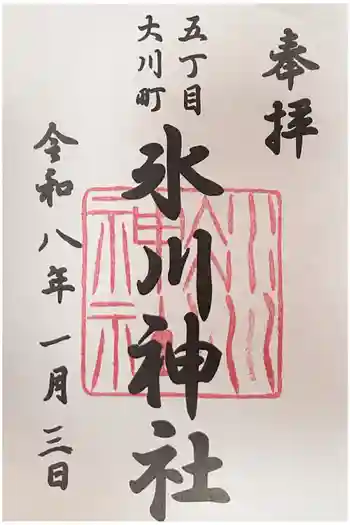 奉拝
五丁目
大川町
氷川神社
令和八年 一月三日
氷川神社